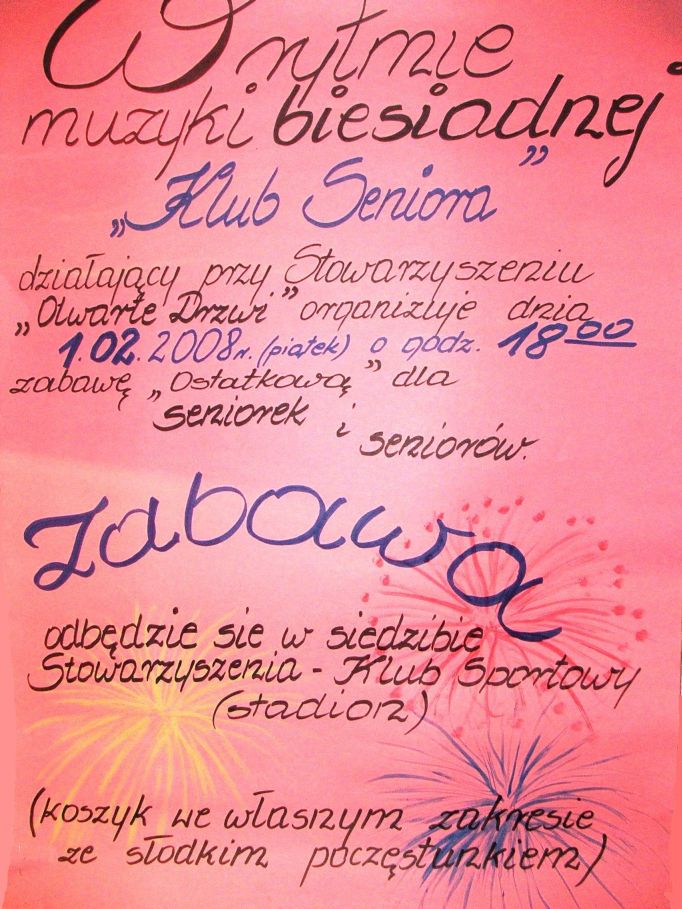 W rytmie
muzyki biesiadnej"
„Klub Seniora"
działający przy Stowarzyszeniu
„Otwarte Drzwi" organizuje dnia
1.02.2008r. (piątek) o godz. 18 00
zabawę „Ostatkową" dla
seniorek i
seniorów.
Zabawa
odbędzie się w siedzibie
Stowarzyszenia - Klub Sportowy
(stadion)
(koszyk we własnym zakresie
ze słodkim poczęstunkiem)